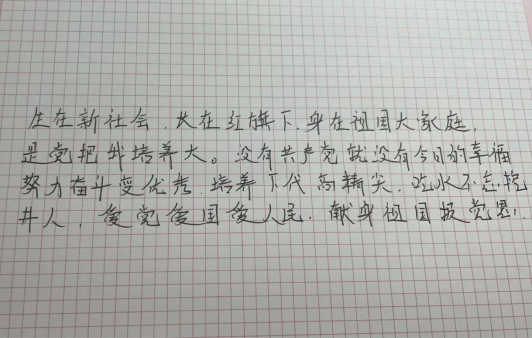 生在新社会.长在红旗下.身在祖国大家庭.
是党把我培养大。没有共产党就没有今日的幸福
努力奋斗变优秀.培养下代高精尖.吃水不忘挖
井人.爱党爱国爱人民.献身祖国报党恩,